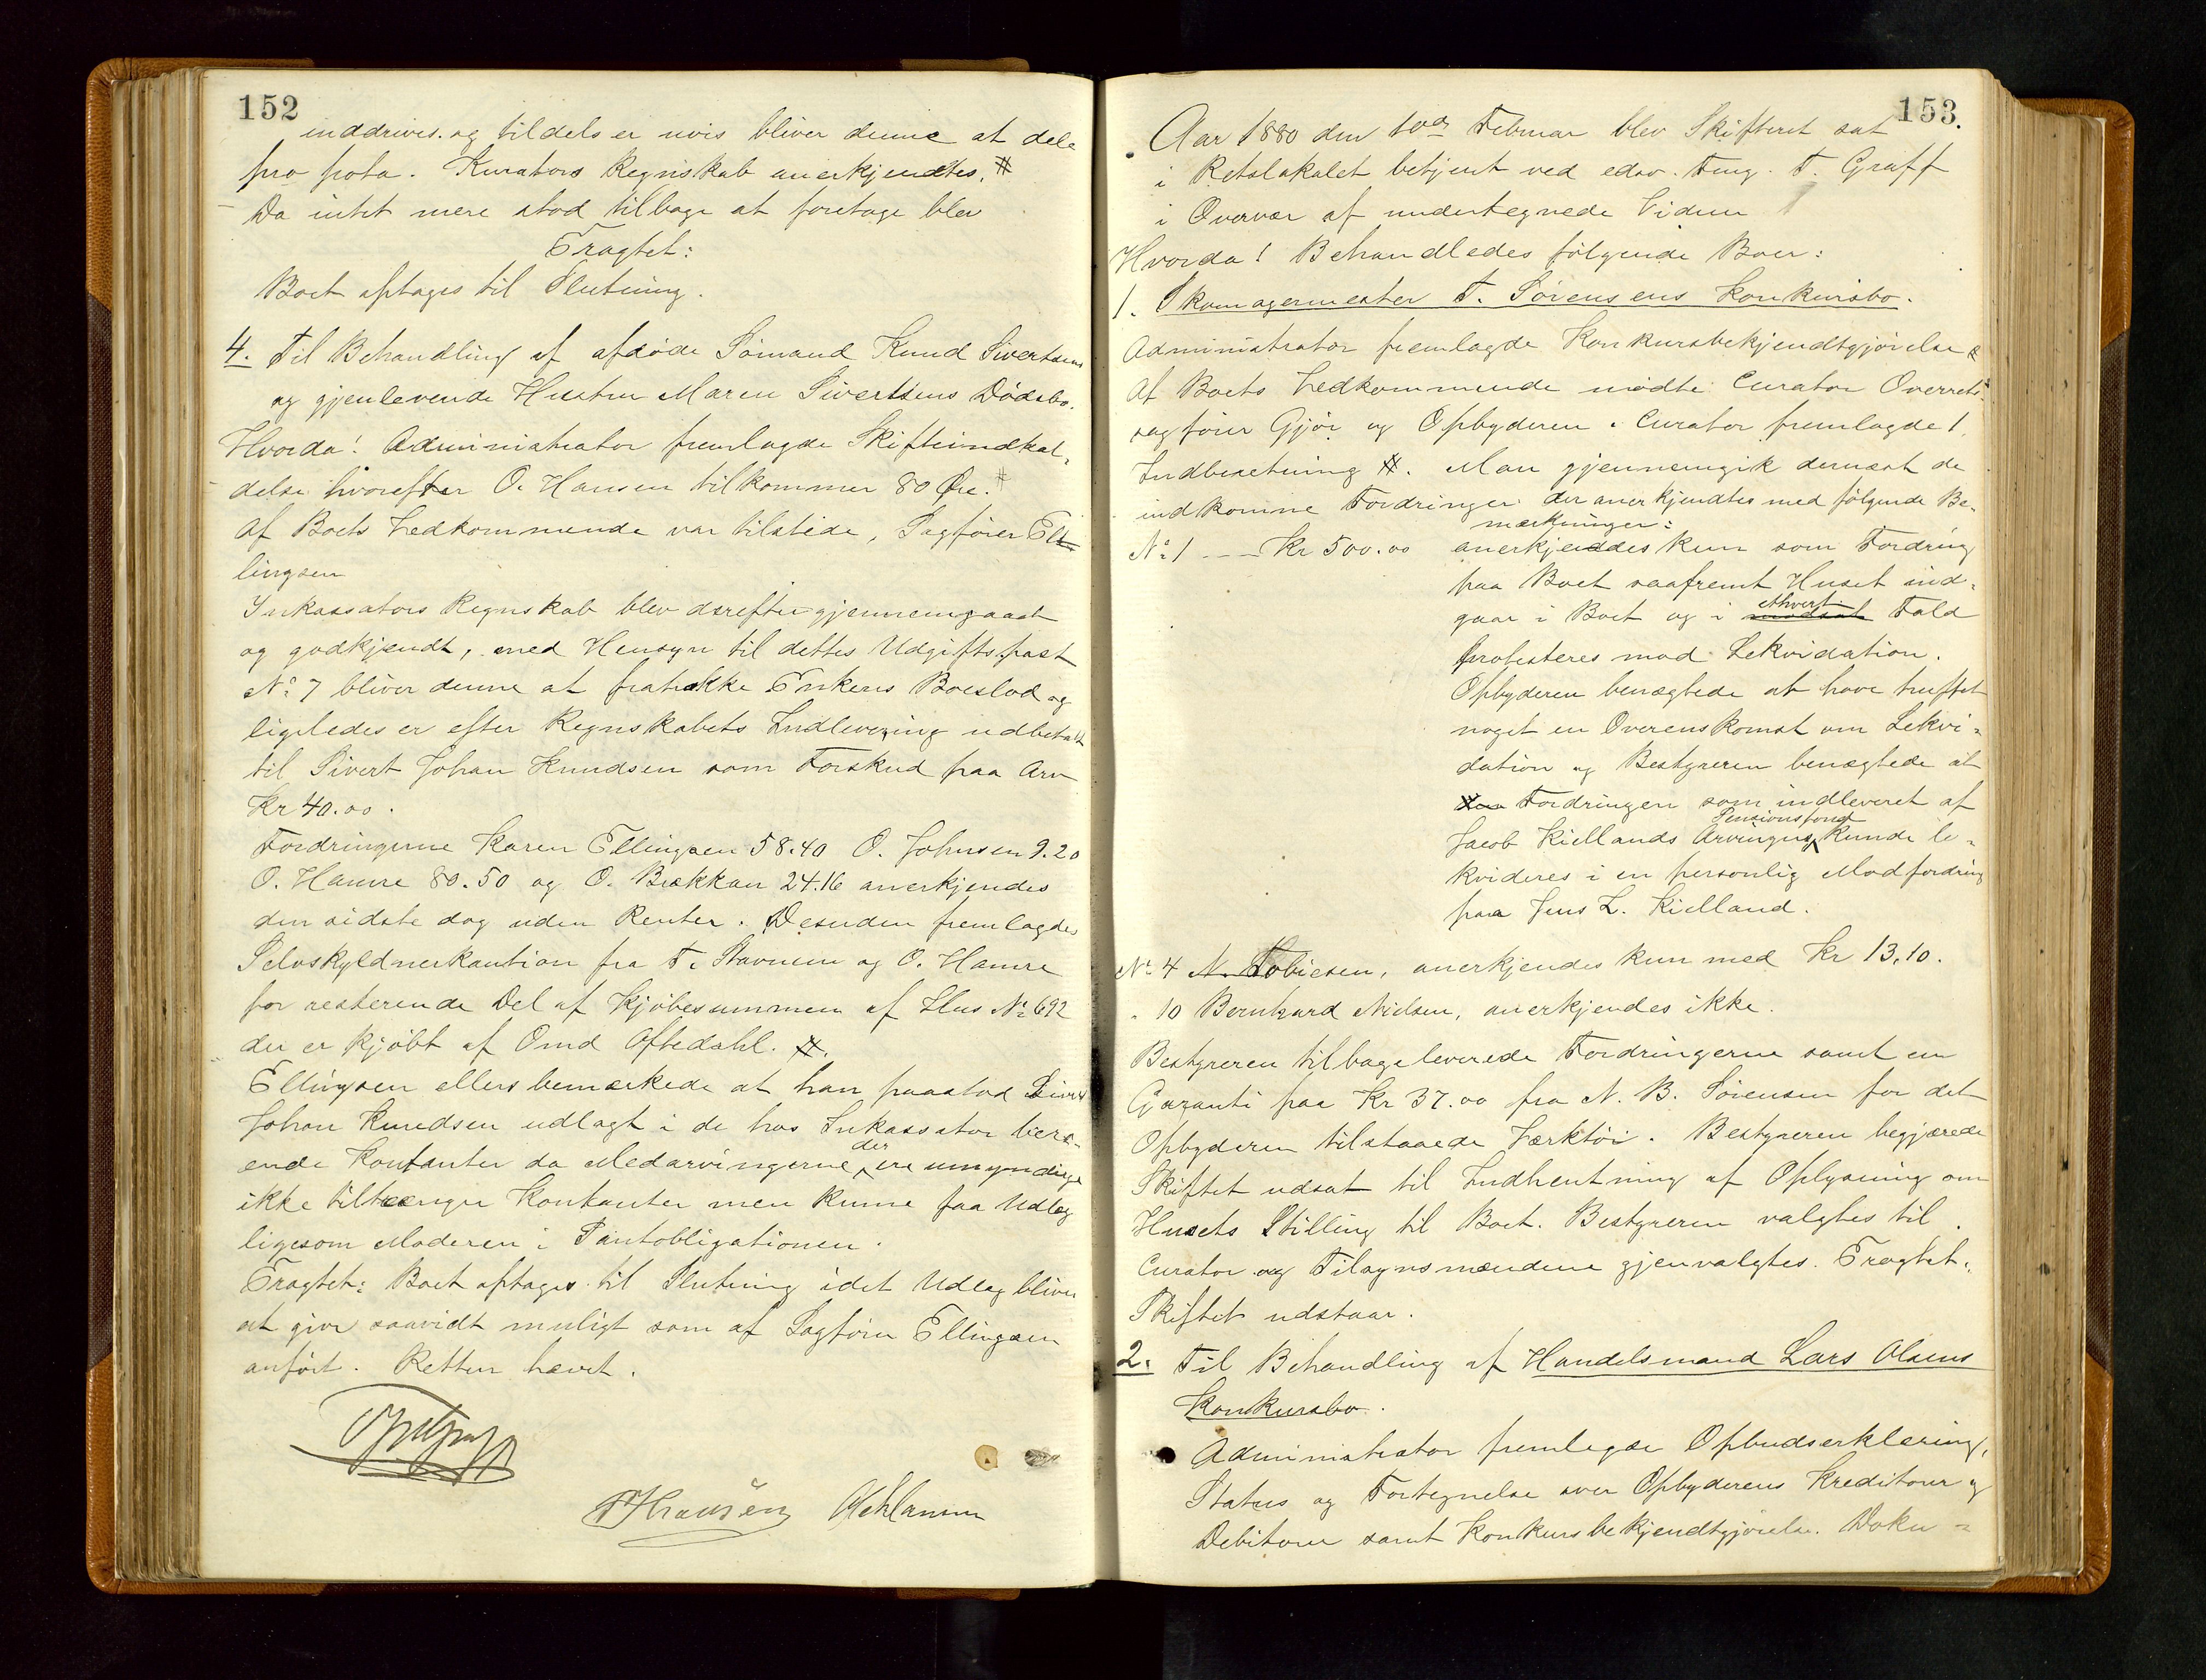 152
inddrives. og tildels er uvis bliver denne at dele
pro rota. Kurators Regnskab anerkjendtes. #
Da intet mere stod tilbage at foretage blev
Eragtet:
Boet optages til Slutning.
4. Til Behandling af afdøde Sømand Knud Sivertsens
og gjenlevende Hustru Maren Sivertsens Dødsbo.
Hvorda! Administrator fremlagde Skifteindkal-
delse hvorefter O. Hansen tilkommer 80 Øre. #
Af Boets Vedkommende var tilstede, Sagfører El-
lingsen
Inkassators Regnskab blev derefter gjennemgaaet
og godkjendt, med Hensyn til dettes Udgiftspost
No 7 bliver denne at fratrække Enkens Boeslod og
ligeledes er efter Regnskabets Indlevering udbetalt
til Sivert Johan Knudsen som Forskud paa Arv
Kr 40.00.
Fordringerne Karen Ellingsen 58.40 O. Johnsen 9.20
O. Hamre 80.50 og O. Brekkan 24.16 anerkjendes
den sidste dog uden Renter. Desuden fremlagdes
Selvskyldnerkaution fra T. Stavnem og O. Hamre
for resterende Del af Kjøbesummen af Hus No 692
der er kjøbt af Omd Oftedahl. #.
Ellingsen ellers bemærkede at han paastod Sivert
Johan Knudsen udlagt i de hos Inkassator bero-
ende Kontanter da Medarvingerne der ere umyndige
ikke tiltrænger Kontanter men kunne faa Udlæg
ligesom Moderen i Pantobligationen.
Eragtet: Boet optages til Slutning idet Udlæg bliver
at give saavidt muligt som af Sagfører Ellingsen
anført. Retten hævet.
T. Hansen
153.
Aar 1880 den 10de Februar blev Skifteret sat
i Retslokalet betjent ved edsv. Fmg. T. Graff
i Overvær af undertegnede Vidner
Hvorda! Behandledes følgende Boer:
1. Skomagermester T. Sørensens Konkursbo.
Administrator fremlagde Konkursbekjendtgjørelse #
Af Boets Vedkommende mødte Curator Overrets-
sagfører Gjør og Opbyderen. Curator fremlagde 1
Indberetning #. Man gjennemgik dernæst de
indkomne Fordringer der anerkjendtes med følgende Be-
mærkninger:
No 1 — Kr 500.00 anerkjendes kun som Fordring
paa Boet saafremt Huset ind-
gaar i Boet og i ethvert Fald
protesteres mod Lekvidation.
Opbyderen benægtede at have truffet
noget en Overenskomst om Lekvi-
dation og Bestyreren benægtede at
Fordringen som indleveret af
Jacob Kiellands Arvinges Pensionsfond kunde le-
kvideres i en personlig Modfordring
paa Jens Z. Kielland.
No 4 N. Tobiesen, anerkjendes kun med Kr 13.10.
" 10 Bernhard Nielsen, anerkjendes ikke.
Bestyreren tilbageleverede Fordringerne samt en
Garanti paa Kr 37.00 fra N. B. Sørensen for det
Opbyderen tilstaaede Værktøi. Bestyreren begjærede
Skiftet udsat til Indhentning af Oplysning om
Husets Stilling til Boet. Bestyreren valgtes til
Curator og Tilsynsmændene gjenvalgtes. Eragtet:
Skiftet udstaar.
2. Til Behandling af Handelsmand Lars Olsens
Konkursbo.
Administrator fremlagde Opbudserklering,
Status og Fortegnelse over Opbyderens Kreditorer og
Debitorer samt Konkursbekjendtgjørelse. Doku-